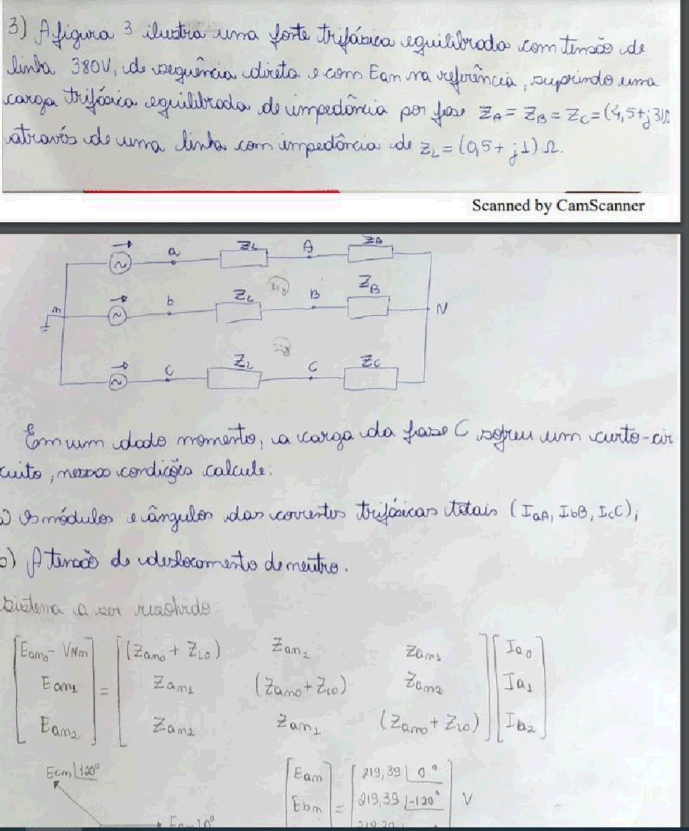 3) A figura 3 ilustra uma fonte trifásica equilibrada com tensão de
linha 380V, de sequência direta e com Ean na referência, suprindo uma
carga trifásica equilibrada de impedância por fase ZA = ZB = ZC = (4,5+j3)Ω
através de uma linha com impedância de ZL = (0,5 + j1) Ω.
Scanned by CamScanner
a ZL A ZA
b ZL B ZB
n N
c ZL C ZC
Em um dado momento, a carga da fase C sofreu um curto-cir
cuito, nessas condições calcule:
a) Os módulos e ângulos das correntes trifásicas totais (IaA, IbB, IcC);
b) A tensão de deslocamento de neutro.
Sistema a ser resolvido
Ean0 - VNn (Zan0 + ZL0) Zan2 Zan1 Ia0
Ean1 = Zan1 (Zan0 + ZL0) Zan2 Ia1
Ean2 Zan2 Zan1 (Zan0 + ZL0) Ib2
Ecn 120°
Ean 219,39 0°
Ebn = 219,39 -120° V